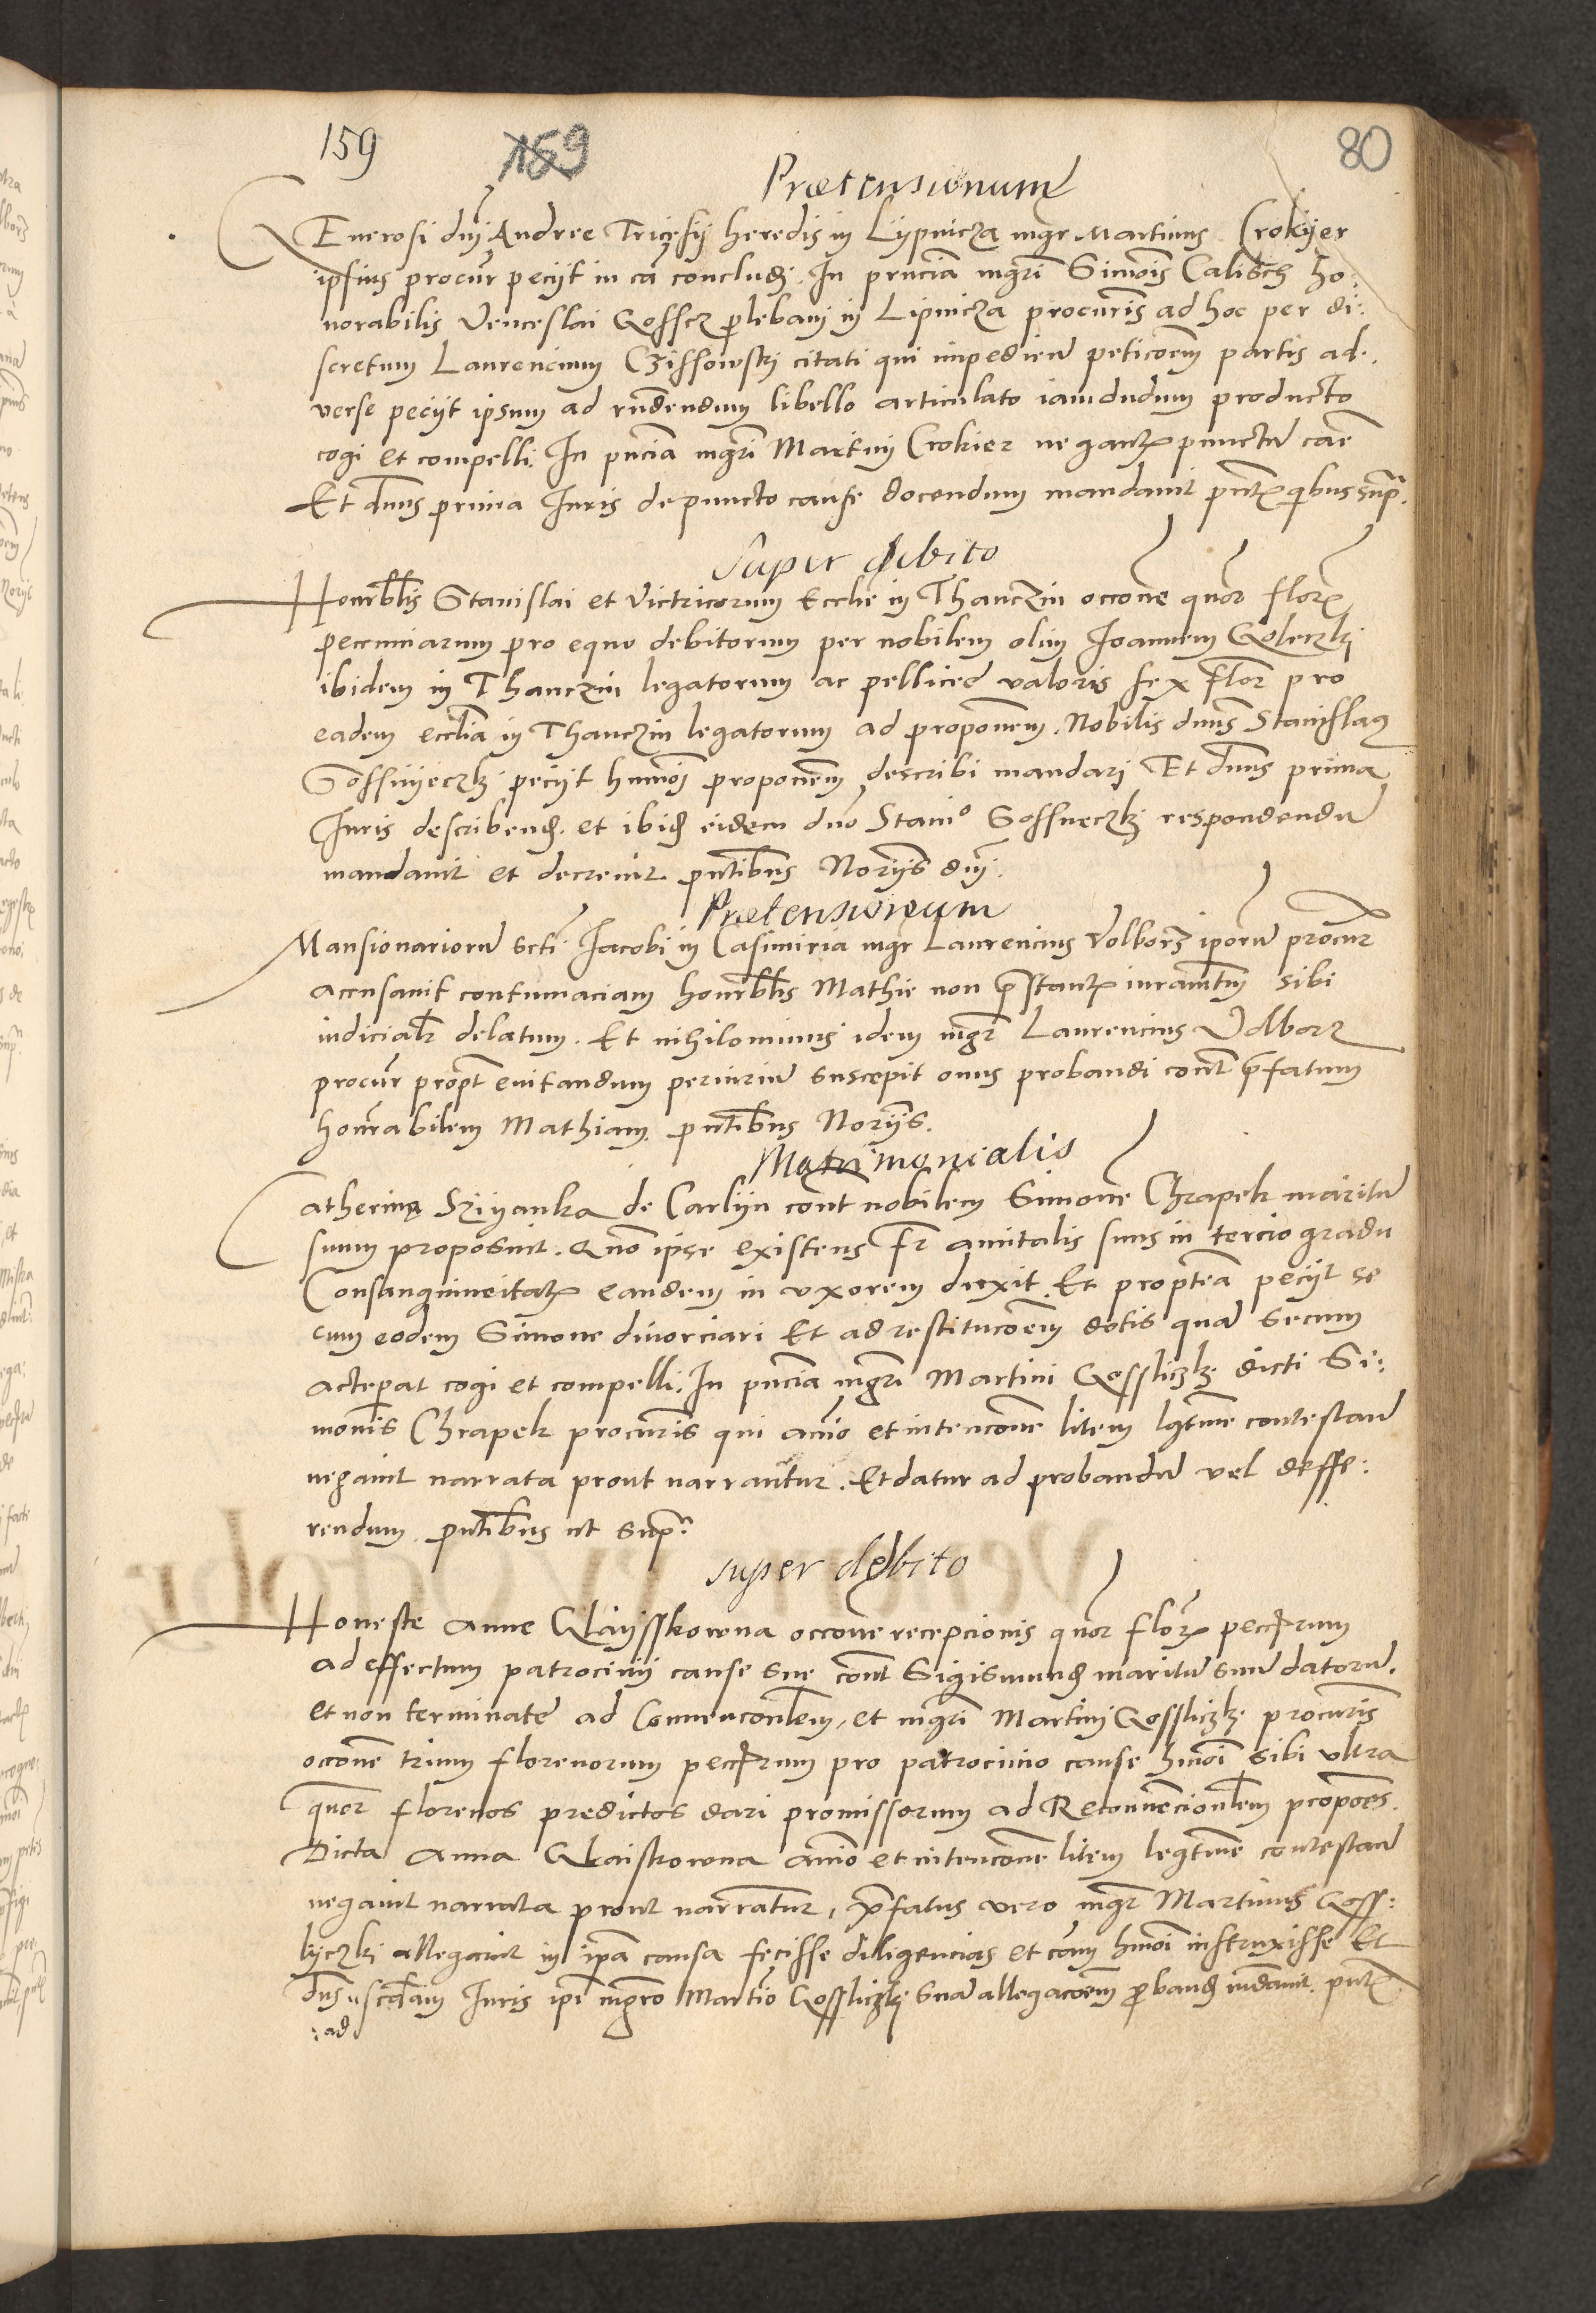 159 159 80
Prætensionum
Generosi dni Andree Tricesij heredis in Lypnicza mgr Martinus Crokyer
ipsius procur peciit in ca concludi. In pncia mgri Simois Calisch ho:
norabilis Venceslai Gosscz plebani in Lipnicza procuris ad hoc per di:
scretum Laurencium Czissowski citati qui impediens peticoem partis ad:
verse peciit ipsum ad rndendum libello articulato iamdudum producto
cogi et compelli. In pncia mgri Martini Crokier negantis punctum cae
Et dnus prima Juris de puncto cause docendum mandavit pntibus quibus supra.
Super debito
Honrblis Stanislai et victricorum Ecclie in Thanczin occone quor flor
pecuniarum pro equo debitorum per nobilem olim Joannem Goleczki
ibidem in Thanczin legatorum ac pellicee valoris sex flor pro
eadem ecclia in Thanczin legatorum ad proponem. Nobilis dnus Stanislaus
Gossnyeczki peciit hmoi proponem describi mandari Et dnus prima
Juris describend. et ibid eidem dno Stanio Gossneczki respondendu
mandavit et decrevit pntibus Norijs dni.
Prætensionum
Mansionarioru scti Jacobi in Casimiria mgr Laurencius Volborz iporu procur
accusavit contumaciam honrblis Mathie non prestantis iuramtum sibi
iudicialr delatum. Et nihilominus idem mgr Laurencius Volborz
procur propt evitandum periuriu suscepit onus probandi cont prefatum
honrabilem Mathiam. pntibus Norijs.
Matrimonialis
Catherina Sziyanka de Carlijn cont nobilem Simone Chrapek maritu
suum proposuit. Quo ipse existens fr amitalis suus in tercio gradu
Consanguineitatis eandem in uxorem duxit. Et proptea peciit se
cum eodem Simone divorciari Et ad restitucoem dotis qua secum
acteperat cogi et compelli. In pncia mgri Martini Gossliczki dicti Si:
monis Chrapek procuris qui aio et intencone litem lgtme contestan
negavit narrata prout narrantur. Et datur ad probandu vel deffe:
rendum. pntibus ut supra
super debito
Honeste Anne Glaysskowna occone recepcionis quor flor peccrum
ad effectum patrocinij cause sue cont Sigismund maritu suum datoru.
et non terminate ad Convenconlem, et mgri Martini Gossliczki procuris
occone trium florenorum peccrum pro patrocinio cause hmoi sibi ultra
quor florenos predictos dari promissorum ad Reconvencionlem propoes.
Dicta Anna Glaiskowna aio et intencone litem legtme contestan
negavit narrata prout narratur, prefatus vero mgr Martinus Goss:
lyczki allegavit in ipa causa fecisse diligencias et cam hmoi instruxisse Et
dns scdam Juris ipi mgro Martio Gossliczki sua allegacoem proband mdavit. pnt
:ad